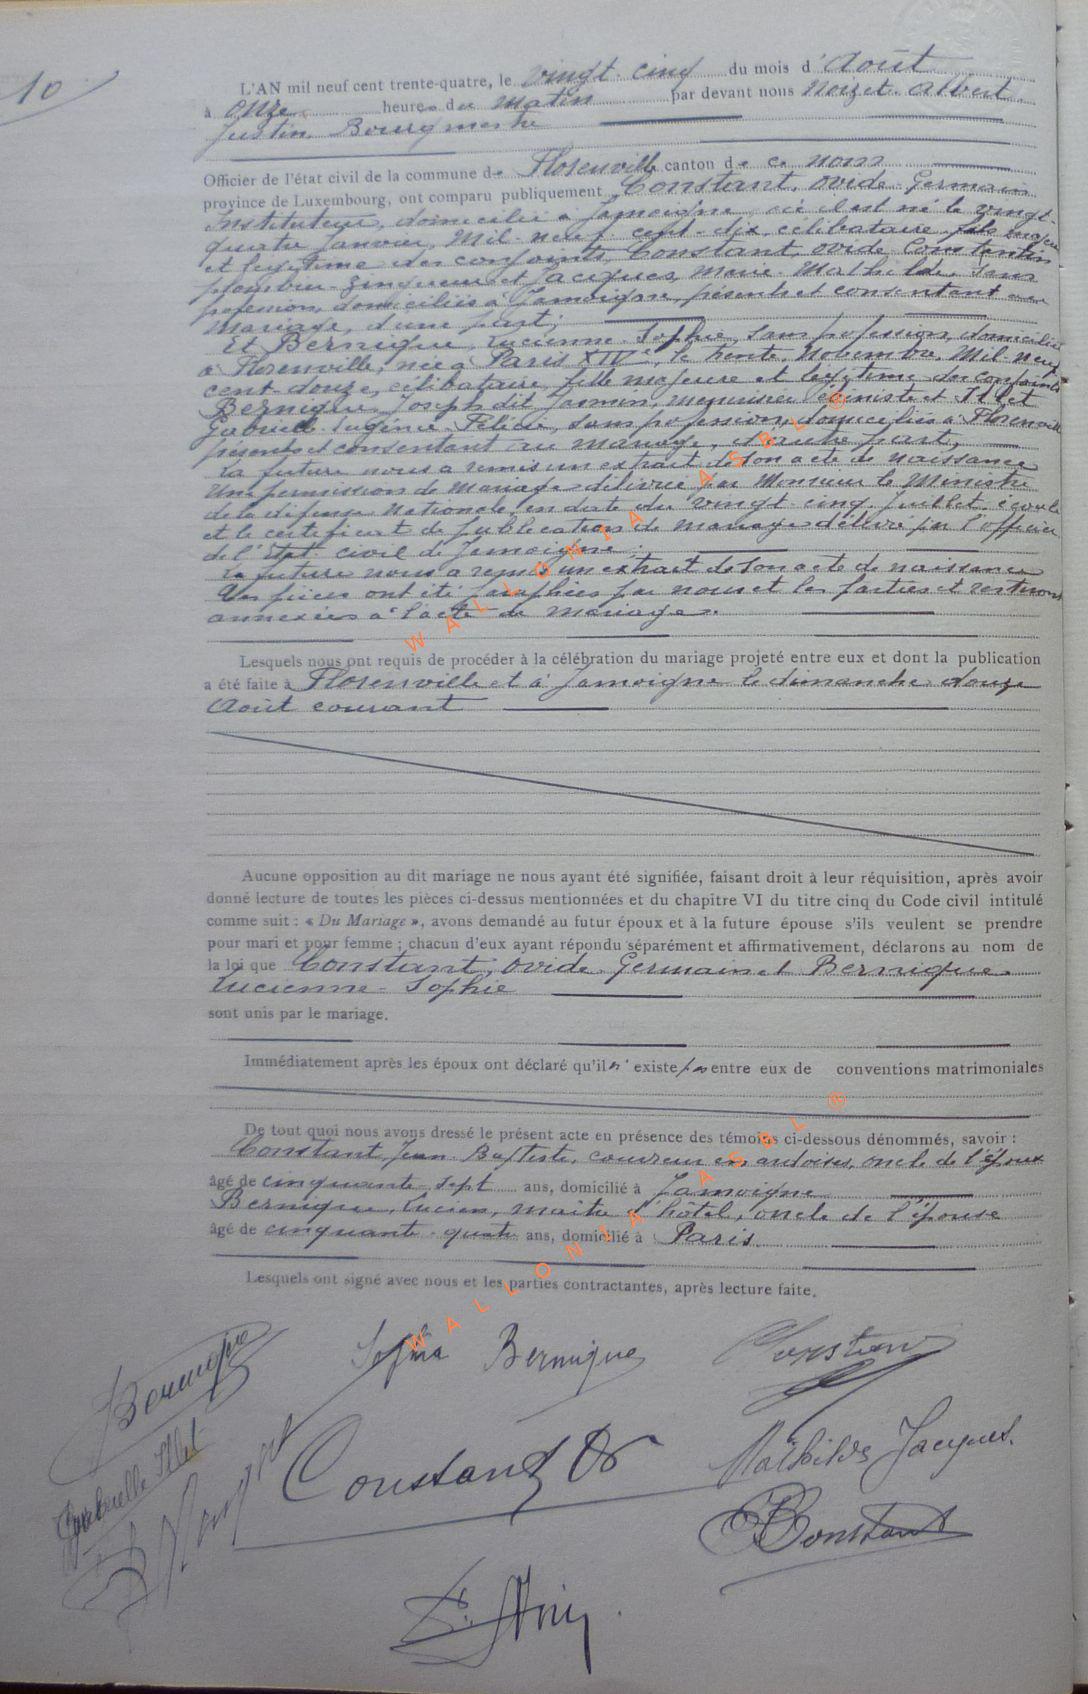 10
L'AN mil neuf cent trente-quatre, le vingt-cinq du mois d'Août
à onze heures du matin par devant nous Noizet Albert
Justin Bourgmestre
Officier de l'état civil de la commune de Florenville canton de ce nom
province de Luxembourg, ont comparu publiquement Constant, Ovide-Germain
Instituteur, domicilié à Jamoigne, où il est né le vingt-
quatre Janvier, Mil-neuf cent-dix, célibataire, fils majeur
et légitime des conjoints Constant, Ovide Constantin
plombier-zingueur et Jacques, Marie-Mathilde, sans
profession, domiciliés à Jamoigne, présents et consentant au
mariage, d'une part;
Et Bernique, Lucienne-Sophie, sans profession, domiciliée
à Florenville, née à Paris XIVe, le trente Novembre Mil-neuf-
cent-douze, célibataire, fille majeure et légitime des conjoints
Bernique Joseph dit Firmin, menuisier ébéniste et Illet
Gabrielle-Eugénie-Félicie, sans profession, domiciliés à Florenville
présents et consentant au mariage, d'autre part,
La future nous a remis un extrait de son acte de naissance
Une permission de mariage délivrée par Monsieur le Ministre
de la défense Nationale, en date du vingt-cinq Juillet écoulé
et le certificat de publication de mariage délivré par l'officier
de l'état civil de Jamoigne.
La future nous a remis un extrait de son acte de naissance
Ces pièces ont été paraphées par nous et les parties et resteront
annexées à l'acte de mariage.
Lesquels nous ont requis de procéder à la célébration du mariage projeté entre eux et dont la publication
a été faite à Florenville et à Jamoigne le dimanche douze
Août courant
Aucune opposition au dit mariage ne nous ayant été signifiée, faisant droit à leur réquisition, après avoir
donné lecture de toutes les pièces ci-dessus mentionnées et du chapitre VI du titre cinq du Code civil intitulé
comme suit : « Du Mariage », avons demandé au futur époux et à la future épouse s'ils veulent se prendre
pour mari et pour femme ; chacun d'eux ayant répondu séparément et affirmativement, déclarons au nom de
la loi que Constant, Ovide-Germain et Bernique
Lucienne-Sophie
sont unis par le mariage.
Immédiatement après les époux ont déclaré qu'il n'existe pas entre eux de conventions matrimoniales
De tout quoi nous avons dressé le présent acte en présence des témoins ci-dessous dénommés, savoir :
Constant Jean-Baptiste, couvreur en ardoises, oncle de l'époux
âgé de cinquante-sept ans, domicilié à Jamoigne
Bernique, Lucien, maître d'hôtel, oncle de l'épouse
âgé de cinquante-quatre ans, domicilié à Paris
Lesquels ont signé avec nous et les parties contractantes, après lecture faite.
Bernique Sophie Bernique Constant
Gabrielle Illet Constant Mathilde Jacques
Constant
WALLONIA ASBL ®
WALLONIA ASBL ®